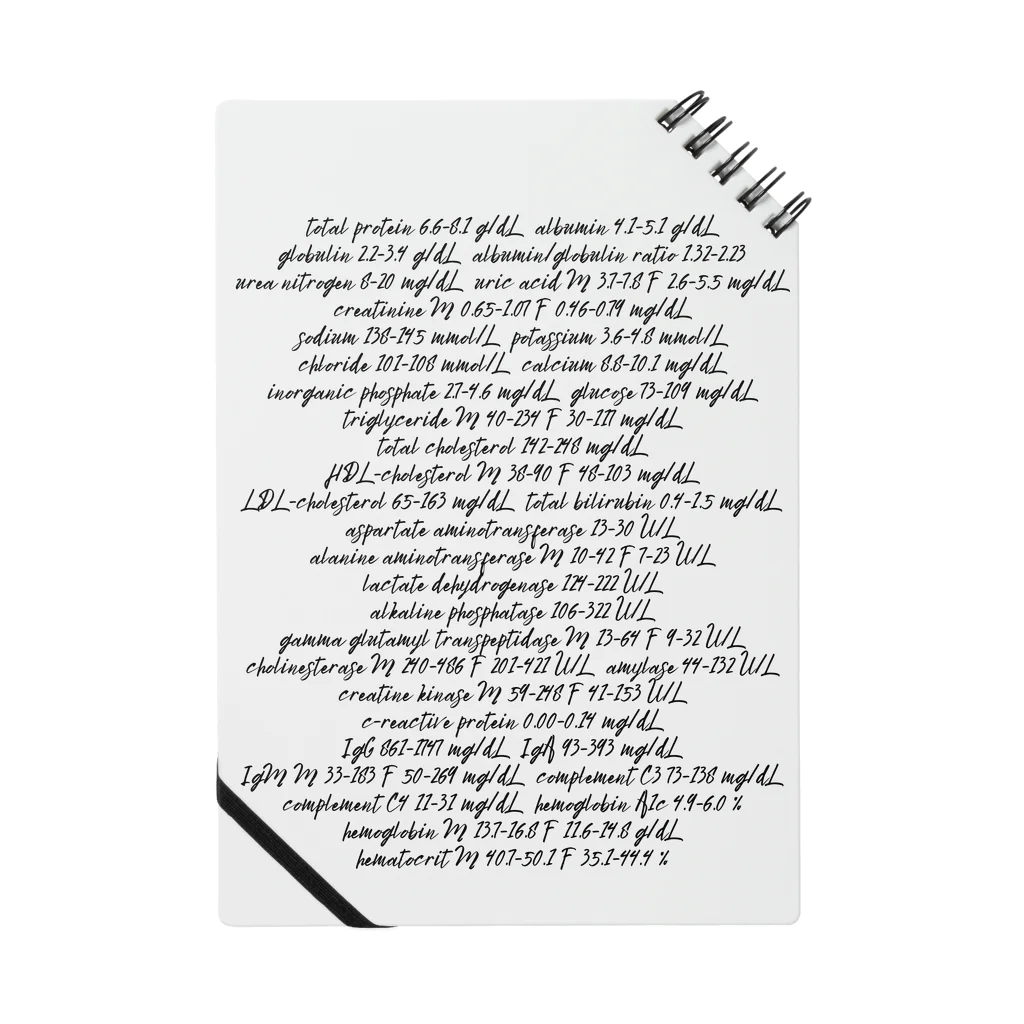 total protein 6.6-8.1 g/dL albumin 4.1-5.1 g/dL
globulin 2.2-3.4 g/dL albumin/globulin ratio 1.32-2.23
urea nitrogen 8-20 mg/dL uric acid M 3.7-7.8 F 2.6-5.5 mg/dL
creatinine M 0.65-1.07 F 0.46-0.79 mg/dL
sodium 138-145 mmol/L potassium 3.6-4.8 mmol/L
chloride 101-108 mmol/L calcium 8.8-10.1 mg/dL
inorganic phosphate 2.7-4.6 mg/dL glucose 73-109 mg/dL
triglyceride M 40-234 F 30-117 mg/dL
total cholesterol 142-248 mg/dL
HDL-cholesterol M 38-90 F 48-103 mg/dL
LDL-cholesterol 65-163 mg/dL total bilirubin 0.4-1.5 mg/dL
aspartate aminotransferase 13-30 U/L
alanine aminotransferase M 10-42 F 7-23 U/L
lactate dehydrogenase 124-222 U/L
alkaline phosphatase 106-322 U/L
gamma glutamyl transpeptidase M 13-64 F 9-32 U/L
cholinesterase M 240-486 F 201-421 U/L amylase 44-132 U/L
creatine kinase M 59-248 F 41-153 U/L
c-reactive protein 0.00-0.14 mg/dL
IgG 861-1747 mg/dL IgA 93-393 mg/dL
IgM M 33-183 F 50-269 mg/dL complement C3 73-138 mg/dL
complement C4 11-31 mg/dL hemoglobin A1c 4.9-6.0 %
hemoglobin M 13.7-16.8 F 11.6-14.8 g/dL
hematocrit M 40.7-50.1 F 35.1-44.4 %